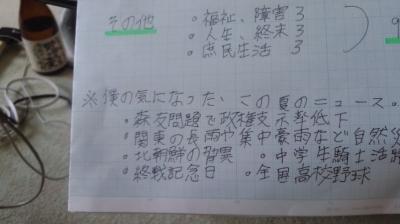 その他
・福祉、障害 3
・人生、終末 3
・庶民生活 3
※僕の気になった、この夏のニュース。
・森友問題で政権支示率低下
・関東の長雨や集中豪雨など自然災
・北朝鮮の脅異 ・中学生騎士活
・終戦記念日 ・全国高校野球